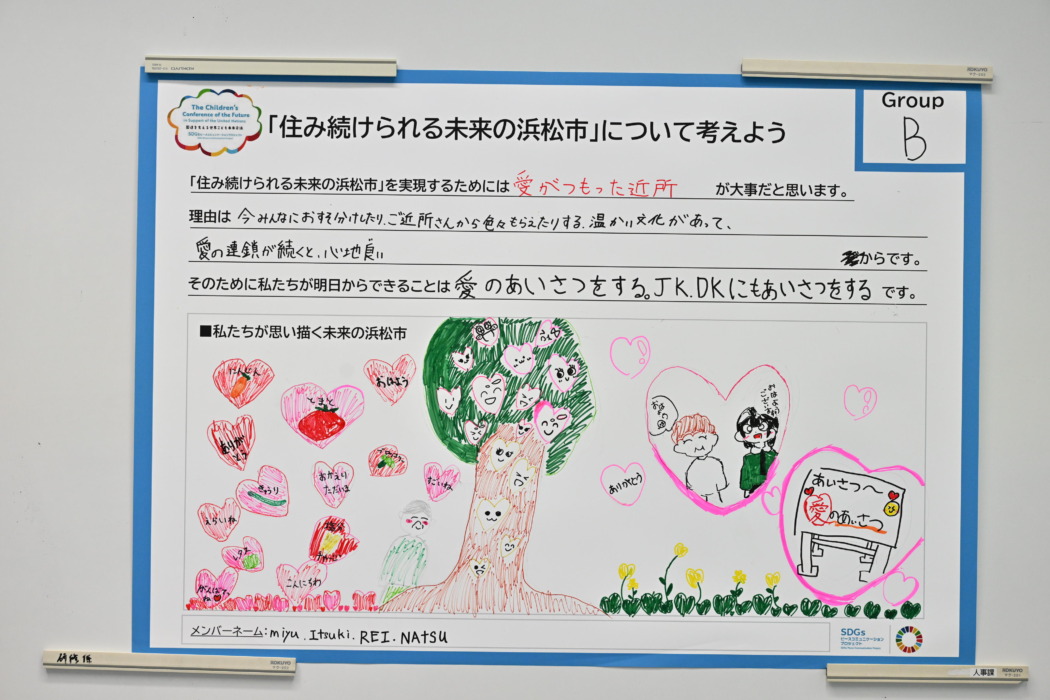 KOKUYO
KOKUYO
The Children's
Conference of the Future
in Support of the United Nations
Group
B
「住み続けられる未来の浜松市」について考えよう
「住み続けられる未来の浜松市」を実現するためには 愛がつもった近所 が大事だと思います。
理由は 今みんなにおすそ分けしたり、ご近所さんから色々もらえたりする、温かい文化があって、
愛の連鎖が続くと、心地良い からです。
そのために私たちが明日からできることは 愛のあいさつをする。JK.DKにもあいさつをする です。
■私たちが思い描く未来の浜松市
にんじん
おはよう
とまと
ありがとう
ブロッコリー
きゅうり
おかえり
ただいま
だいね
えらいね
レタス
こんにちわ
ありがとう
おはよう
おはよう
ございます
あいさつ〜
愛のあいさつ
メンバーネーム:miyu.Itsuki.REI.NATSU
SDGs
ピースコミュニケーション
プロジェクト
研修係
KOKUYO
人事課
KOKUYO